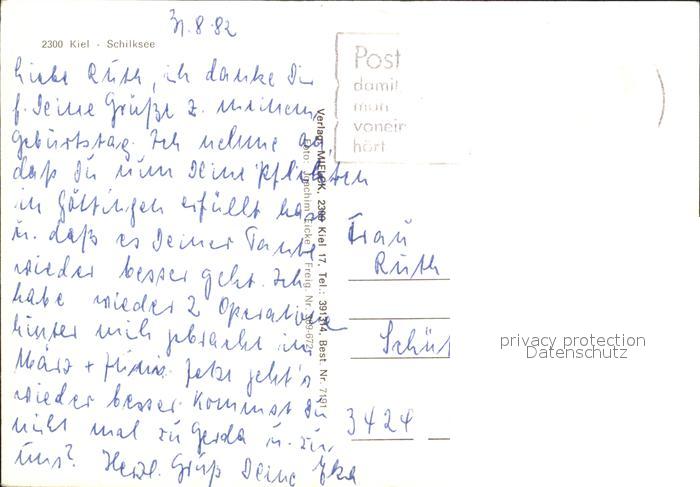 31.8.82
2300 Kiel - Schilksee
Liebe Ruth, ich danke Dir
f. Deine Grüße z. meinem
Geburtstag. Ich nehme an,
daß Du nun Deine Pflichten
in Göttingen erfüllt hast
u. daß es Deiner Tante
wieder besser geht. Ich
habe wieder 2 Operationen
hinter mich gebracht im
März + Juni. Jetzt geht's
wieder besser. Kommst Du
nicht mal zu Gerda u. zu
uns? Herzl. Grüß Deine
Verlag 2300 Kiel 17, Tel.: Best. Nr.
Foto: Joachim Freig. Nr.
Post
damit
man
vonein
hört
Frau
Ruth
Schüt
3424
privacy protection
Datenschutz